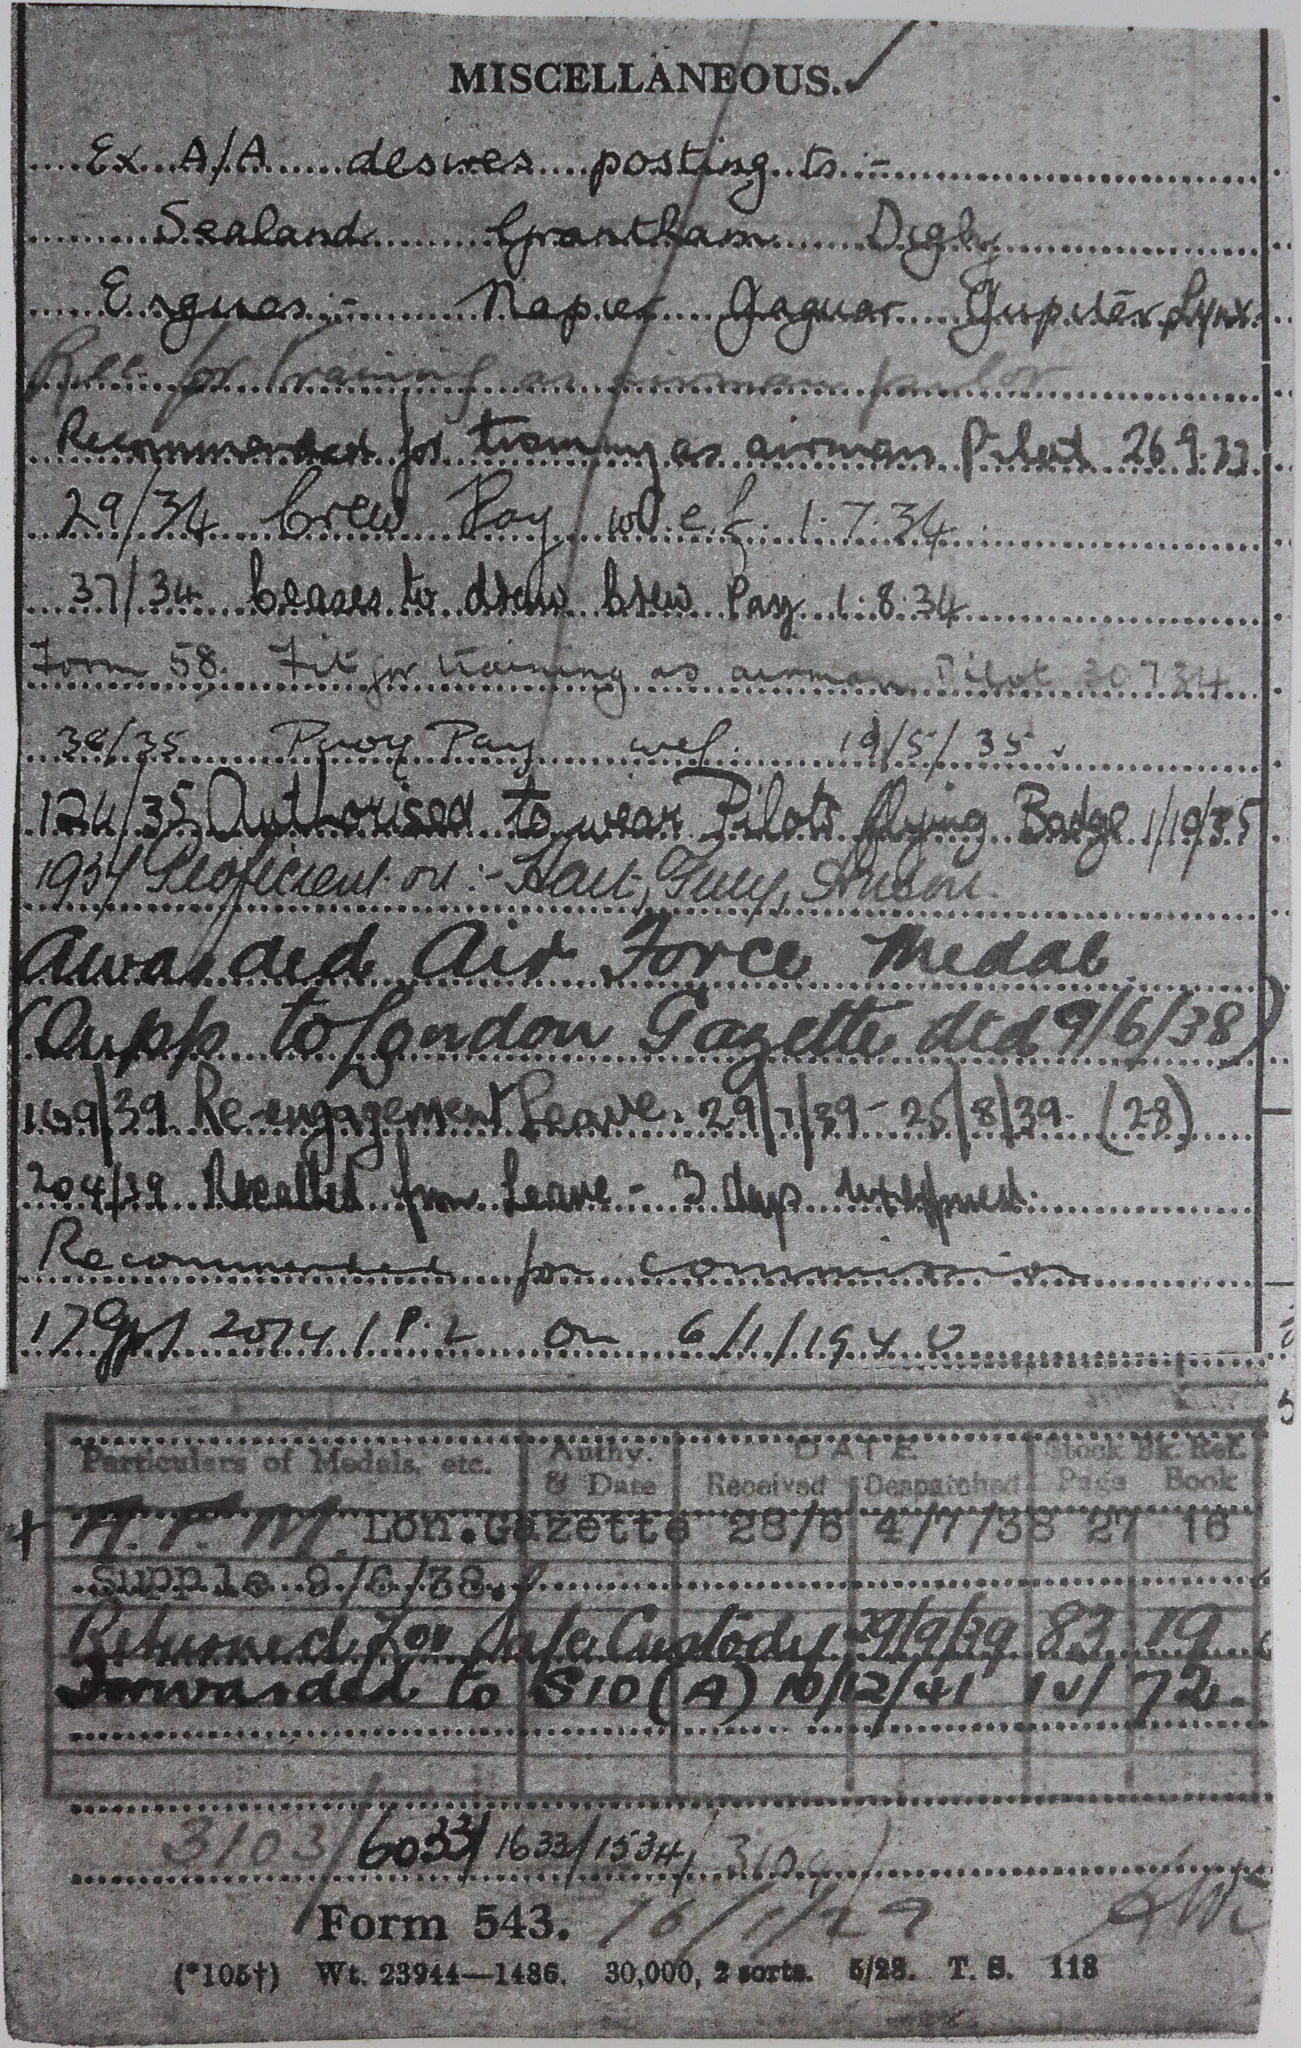 MISCELLANEOUS.
Ex A/A desires posting to :-
Sealand Grantham Digby
Engines :- Napier Jaguar Jupiter Lynx
Rec for Training as airman
Recommended for training as airman Pilot 26.9.33
29/34 Crew Pay w.e.f. 1.7.34
37/34 Ceases to draw Crew Pay 1.8.34
Form 58. Fit for training as airman Pilot 30 7 34
/35 Pay wef. 19/5/35
124/35 Authorised to wear Pilots flying Badge 1/10/35
1937 Proficient on :- Hart, Fury, Anson.
Awarded Air Force Medal
(Supp to London Gazette dtd 9/6/38)
169/39 Re-engagement Leave. 29/7/39 - 25/8/39. (28)
204/39 Recalled from Leave - 3 days
Recommended for commission
17 Gp/ 2074 / P.2 on 6/1/1940
Particulars of Medals, etc. Authy. & Date DATE Received Despatched Stock Bk. Ref. Page Book
+ A.F.M. Lon.Gazette 28/6 4/7/38 27 16
Supple 9/6/38.
Returned For Safe Custody 29/9/39 83 19
Forwarded to S10(A) 10/12/41 101 72
3103/ 6033/ 1633/ 1534/
Form 543. 16/1/29
(*105†) Wt. 23944—1486. 30,000, 2 sorts. 5/28. T. S. 118